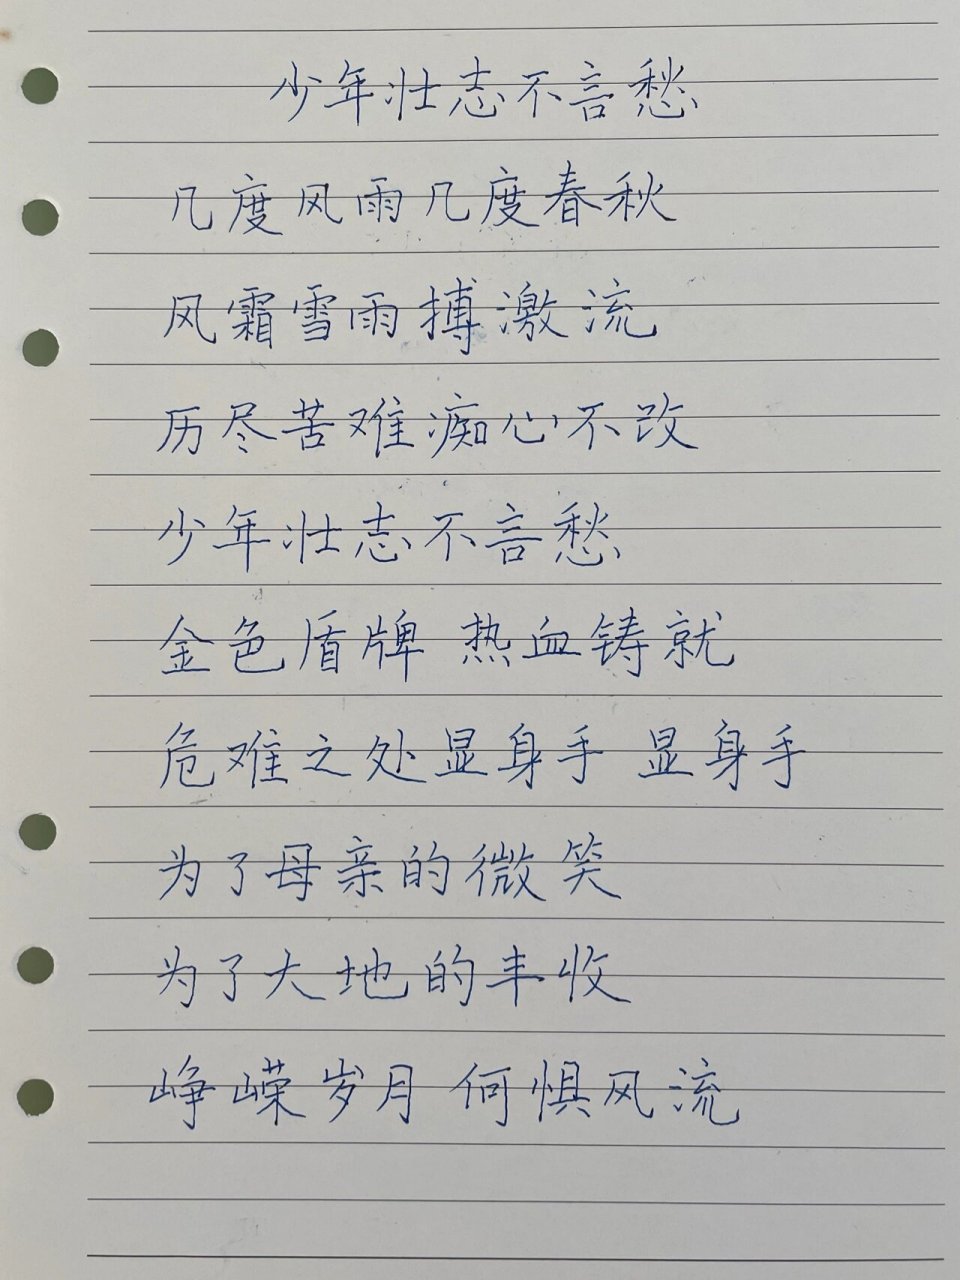 少年壮志不言愁
几度风雨几度春秋
风霜雪雨搏激流
历尽苦难痴心不改
少年壮志不言愁
金色盾牌 热血铸就
危难之处显身手 显身手
为了母亲的微笑
为了大地的丰收
峥嵘岁月 何惧风流